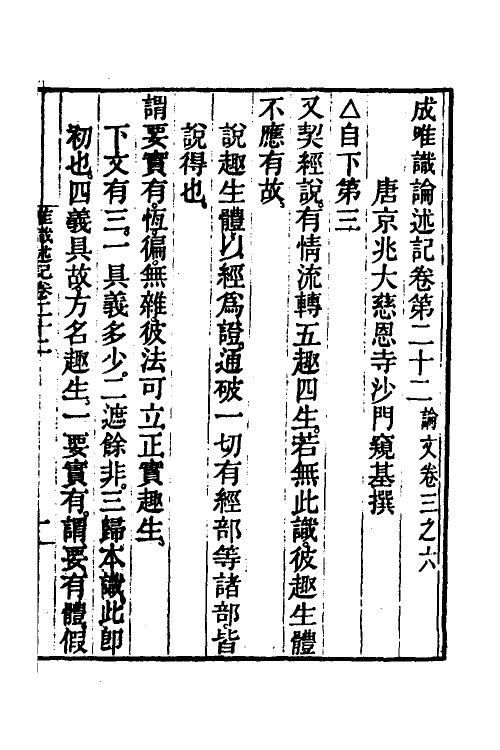 成唯識論述記卷第二十二 論文卷三之六
唐京兆大慈恩寺沙門窺基撰
△自下第三
又契經說。有情流轉五趣四生。若無此識。彼趣生體
不應有故。
說趣生體。以經爲證。通破一切有經部等諸部。皆
說得也。
謂要實有。恆徧。無雜。彼法可立正實趣生。
下文有三。一具義多少。二遮餘非。三歸本識。此卽
初也。四義具故。方名趣生。一要實有。謂要有體。假
唯識述記卷二十二